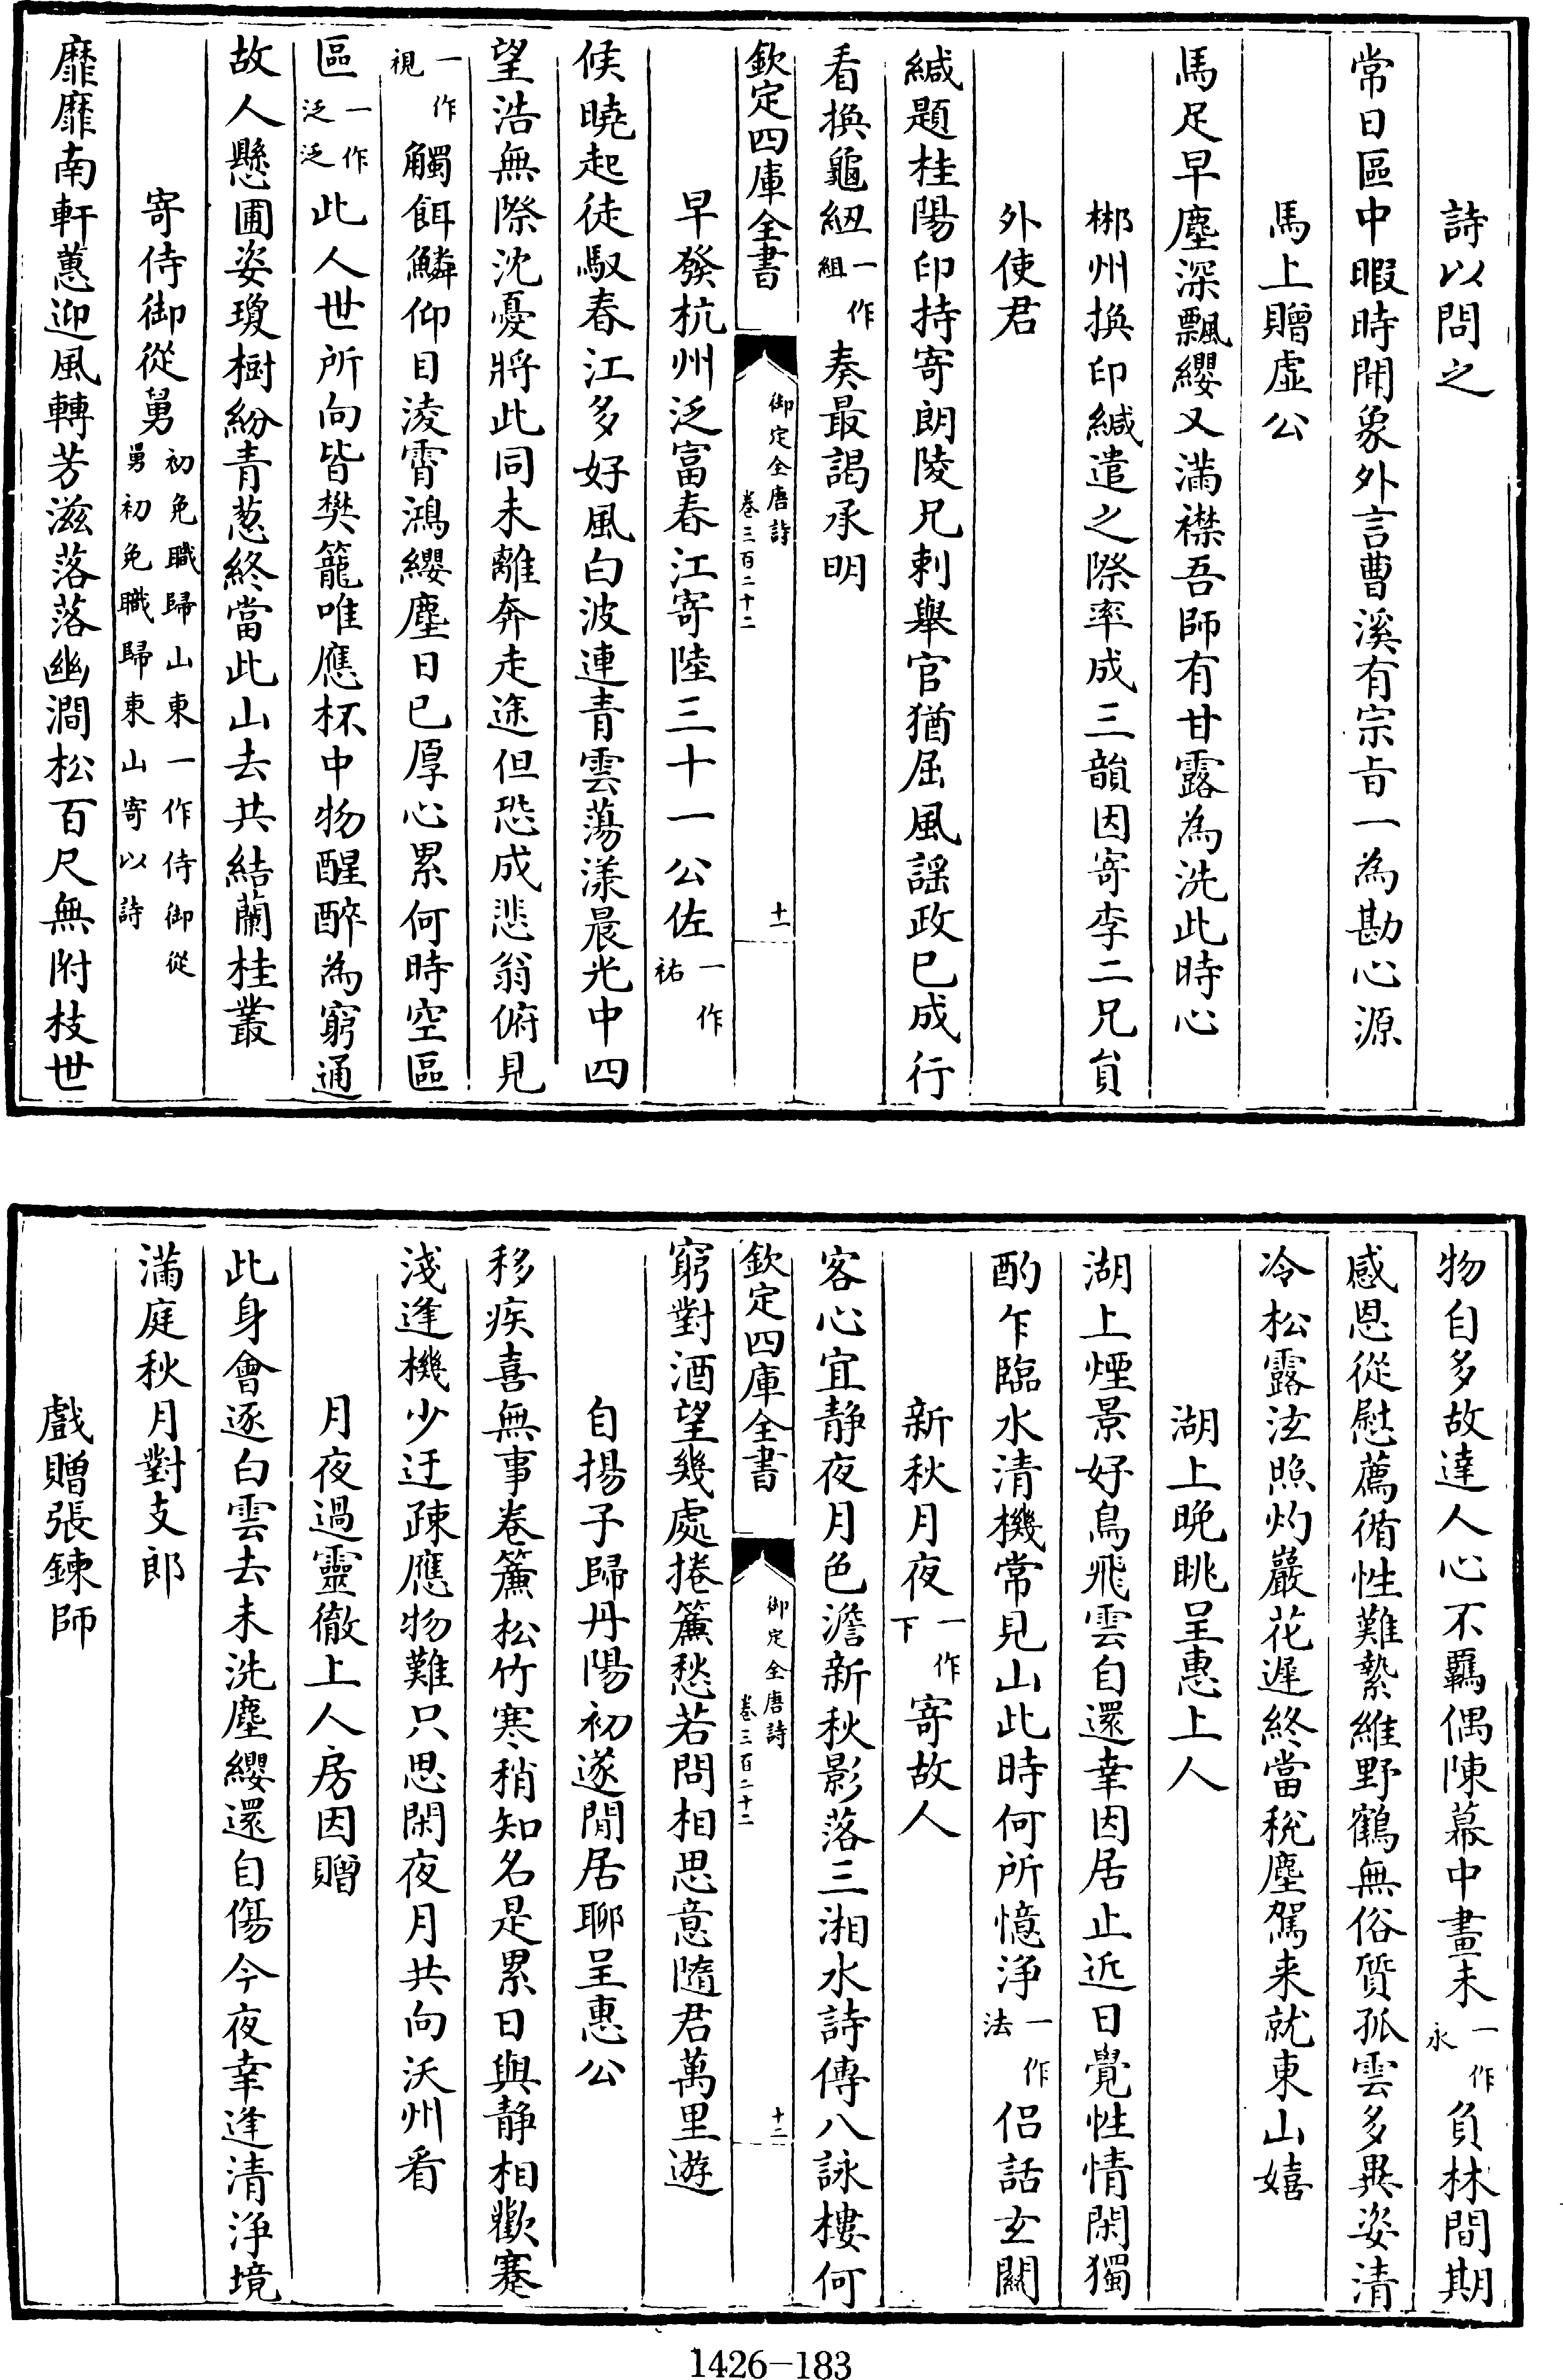 詩以問之
常日區中暇時閒象外言曹溪有宗㫖一為勘心源
馬上贈虛公
馬足早塵深飄纓又滿襟吾師有甘露為洗此時心
郴州換印緘遣之際率成三韻因寄李二兄員
外使君
緘題桂陽印持寄朗陵兄刺舉官猶屈風謠政已成行
看換龜紐一作組奏最謁承明
欽定四庫全書 御定全唐詩 卷三百二十二 十一
早發杭州泛富春江寄陸三十一公佐一作祐
候曉起徒馭春江多好風白波連青雲蕩漾晨光中四
望浩無際沈憂將此同未離奔走途但恐成悲翁俯見
一作視觸餌鱗仰目淩霄鴻纓塵日已厚心累何時空區
區一作泛泛此人世所向皆樊籠唯應杯中物醒醉為窮通
故人懸圃姿瓊樹紛青葱終當此山去共結蘭桂叢
寄侍御從舅初免職歸山東一作侍御從舅初免職歸東山寄以詩
靡靡南軒蕙迎風轉芳滋落落幽澗松百尺無附枝世
物自多故達人心不羈偶陳幕中畫未一作永負林間期
感恩從慰薦循性難縶維野鶴無俗質孤雲多異姿清
冷松露泫照灼巖花遲終當稅塵駕来就東山嬉
湖上晚眺呈惠上人
湖上煙景好鳥飛雲自還幸因居止近日覺性情閑獨
酌乍臨水清機常見山此時何所憶淨一作法侣話玄關
新秋月夜一作下寄故人
客心宜静夜月色澹新秋影落三湘水詩傳八詠樓何
欽定四庫全書 御定全唐詩 卷三百二十二 十二
窮對酒望幾處捲簾愁若問相思意隨君萬里遊
自揚子歸丹陽初遂閒居聊呈惠公
移疾喜無事卷簾松竹寒稍知名是累日與静相歡蹇
淺逢機少迂疎應物難只思閑夜月共向沃州看
月夜過靈徹上人房因贈
此身會逐白雲去未洗塵纓還自傷今夜幸逢清淨境
滿庭秋月對支郎
戲贈張鍊師
1426-183